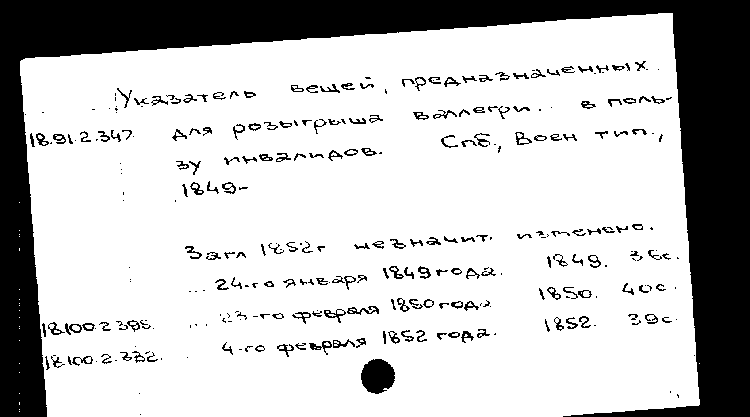 Указатель вещей, предназначенных
18.91.2.347. для розыгрыша валлегри.. в поль-
зу инвалидов. Спб., Воен тип.,
1849-
Загл 1852г незначит. изменено.
... 24-го января 1849 года. 1849. 36с.
18.100.2.395. ... 23-го февраля 1850 года 1850. 40с.
18.100.2.332. 4-го февраля 1852 года. 1852. 39с.